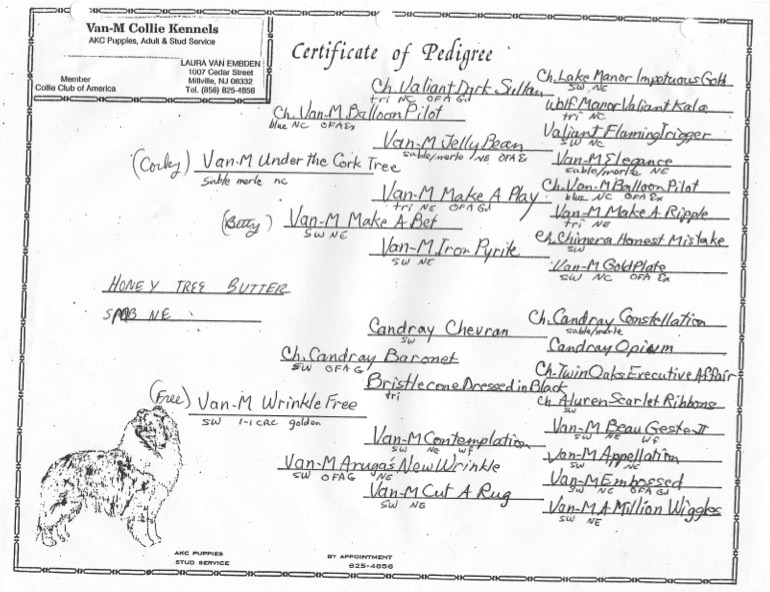 Van-M Collie Kennels
AKC Puppies, Adult & Stud Service
LAURA VAN EMBDEN
1007 Cedar Street
Millville, NJ 08332
Tel. (856) 825-4856
Member
Collie Club of America
Certificate of Pedigree
Ch. Lake Manor Impetuous Gold
SW NC
Ch. Valiant Dark Sultan
tri NC OFA Gd
Wolf Manor Valiant Kala
tri NC
Ch. Van-M Balloon Pilot
blue NC OFA Ex
Valiant Flaming Trigger
SW NC
Van-M Jelly Bean
sable/merle NE OFA Ex
Van-M Elegance
sable/merle NE
(Corky) Van-M Under the Cork Tree
Sable merle nc
Ch. Van-M Balloon Pilot
blue NC OFA Ex
Van-M Make A Play
tri NC OFA Gd
Van-M Make A Ripple
tri NE
(Betty) Van-M Make A Bet
SW NE
Ch. Chimera Honest Mistake
SW
Van-M Iron Pyrite
SW NE
Van-M Gold Plate
SW NC OFA Ex
HONEY TREE BUTTER
NE
Ch. Candray Constellation
sable/merle
Candray Chevran
SW
Candray Opium
Ch. Candray Baronet
SW OFA G
Ch. Twin Oaks Executive Affair
Bristlecone Dressed in Black
tri
Ch. Aluren Scarlet Ribbons
SW
(Free) Van-M Wrinkle Free
SW 1-1 CRC golden
Van-M Beau Geste II
SW NE Wf
Van-M Contemplation
SW NE wf
Van-M Appellation
SW NC
Van-M Aruga's New Wrinkle
SW OFA G NE
Van-M Embossed
SW NC OFA Gd
Van-M Cut A Rug
SW NE
Van-M A Million Wiggles
SW NE
AKC PUPPIES
STUD SERVICE
BY APPOINTMENT
825-4856